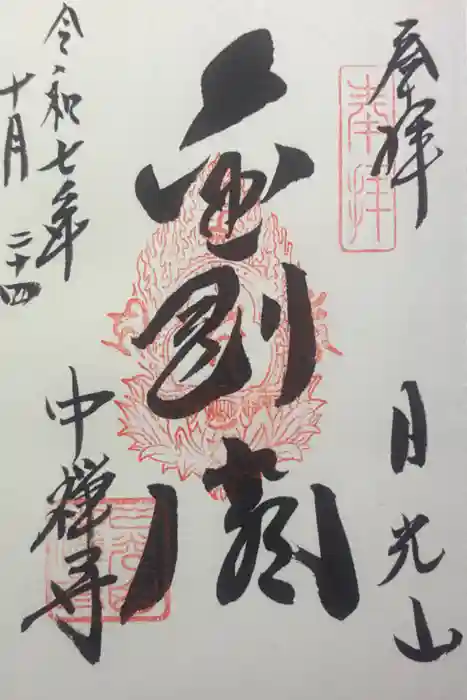 奉拝
奉拝
日光山
金剛
中禅寺
令和七年
十月二十四